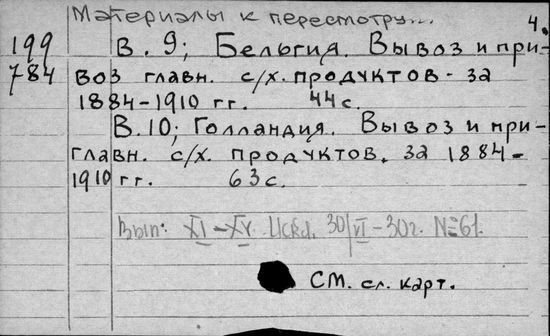 Материалы к пересмотру... 4.
199 В. 9; Бельгия. Вывоз и при-
784 воз главн. с/х. продуктов - за
1884-1910 гг. 44 с.
В. 10; Голландия. Вывоз и при-
главн. с/х. продуктов. за 1884-
1910 гг. 63 с.
Вып: XI-XV. Искл. 30/VI-30г. №61.
См. сл. карт.